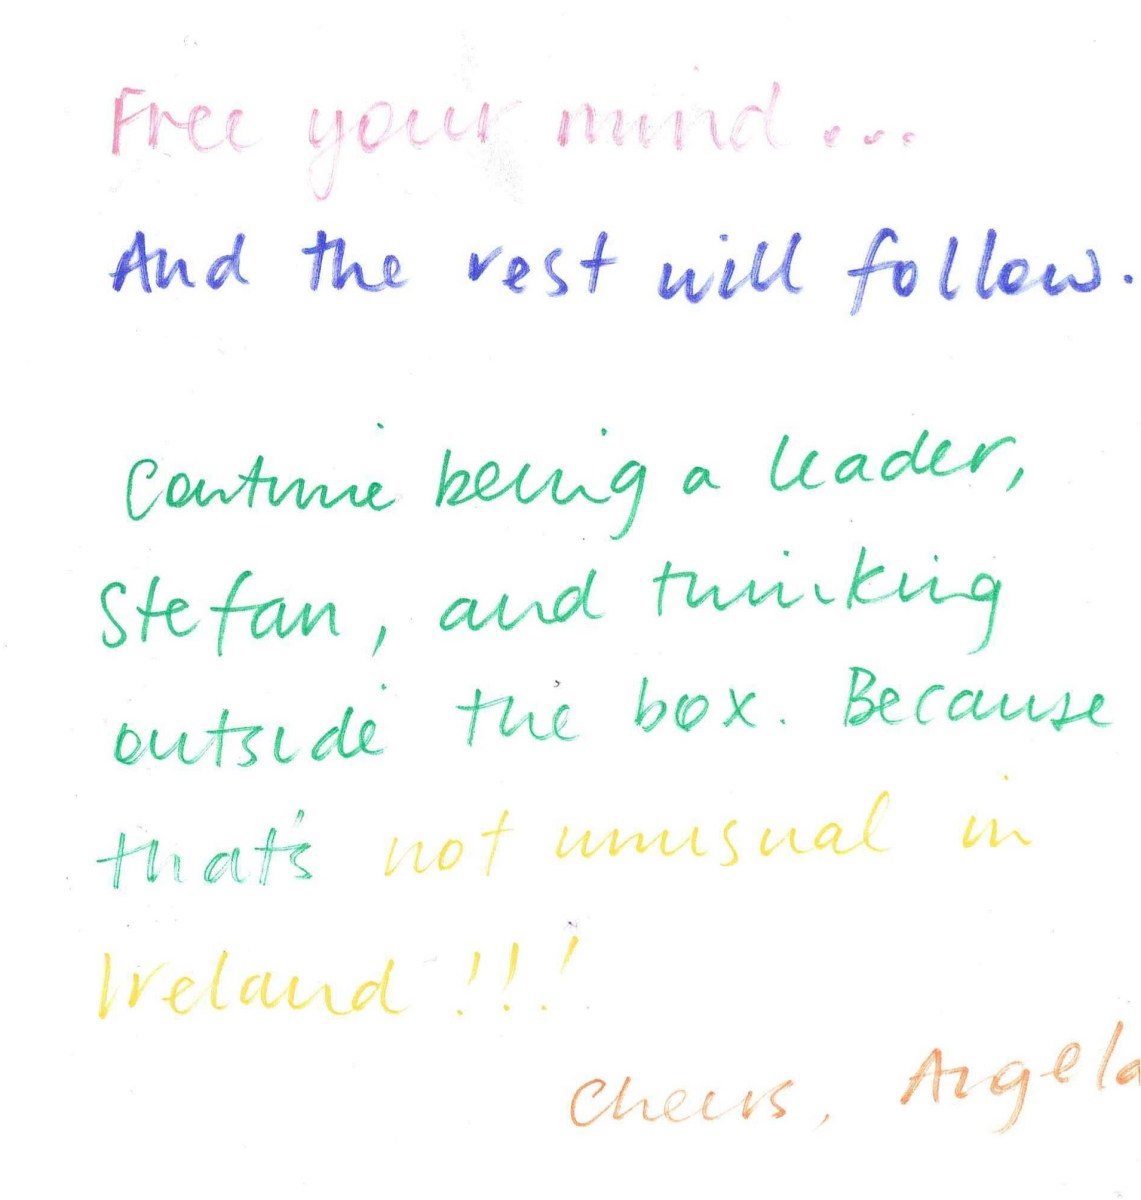 Free your mind...
And the rest will follow.
Continue being a leader,
Stefan, and thinking
outside the box. Because
that's not unusual in
Ireland!!!
Cheers, Angela